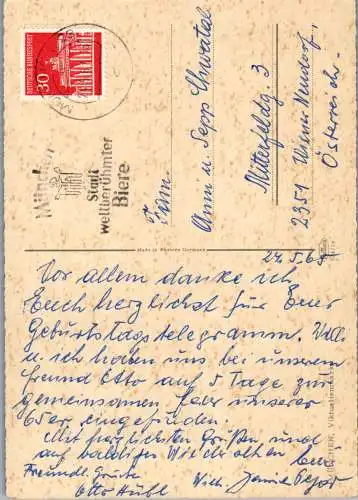 DEUTSCHE BUNDESPOST
30
München
Stadt
weltberühmter
Biere
Fam.
Anna u. Sepp
Mitterfeldg. 3
2351 Wiener Neudorf
Österreich.
Made in Western Germany
Vor allem danke ich
Euch herzlichst für Euer
Geburtstagstelegramm. Willi
u. ich haben uns bei unserem
Freund Otto auf 5 Tage zur
gemeinsamen Feier unserer
65er eingefunden.
Mit herzlichsten Grüßen und
auf baldiges Wiedersehen
Freundl. Grüße
Otto Hübl Willi